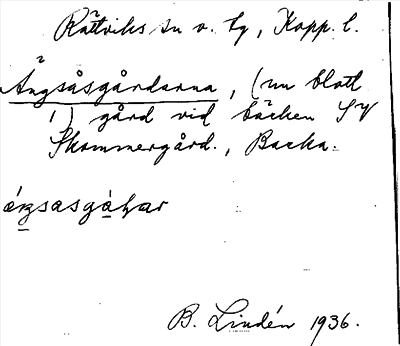 Rättviks sn o. tg, Kopp. l.
Ängsåsgårdarna, (nu blott
1) gård vid bäcken SV
Skommergård., Backa.
B. Lindén 1936.